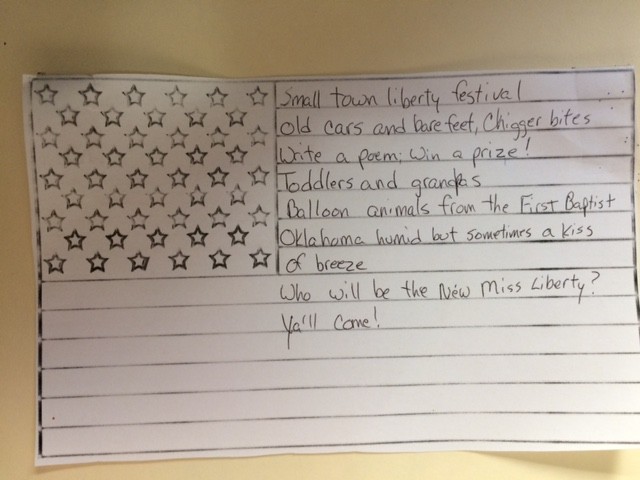 Small town liberty festival
Old cars and bare feet, Chigger bites
Write a poem; Win a prize!
Toddlers and grandpas
Balloon animals from the First Baptist
Oklahoma humid but sometimes a kiss
of breeze
Who will be the New Miss Liberty?
Ya'll Come!